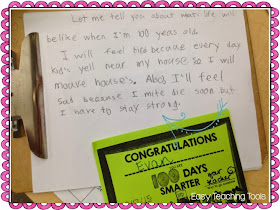 Let me tell you about what life will
be like when I'm 100 years old.
I will feel bad because every day
kids yell near my house so I will
mouve house's. Also I'll feel
sad because I mite die soon but
I have to stay strong.
CONGRATULATIONS
Evan
100 DAYS
SMARTER
your
teacher
Easy Teaching Tools